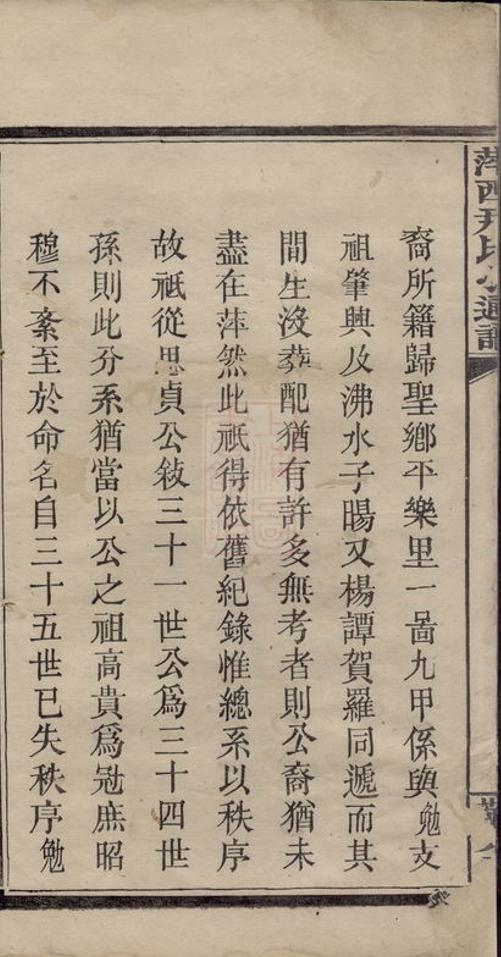 萍西尹氏小通譜
裔所籍歸聖鄉平樂里一啚九甲係與勉支
祖肇興及沸水子暘又楊譚賀羅同遞而其
間生沒葬配猶有許多無考者則公裔猶未
盡在萍然此祇得依舊紀錄惟總系以秩序
故祇從思貞公敍三十一世公爲三十四世
孫則此分系猶當以公之祖高貴爲冠庶昭
穆不紊至於命名自三十五世已失秩序勉